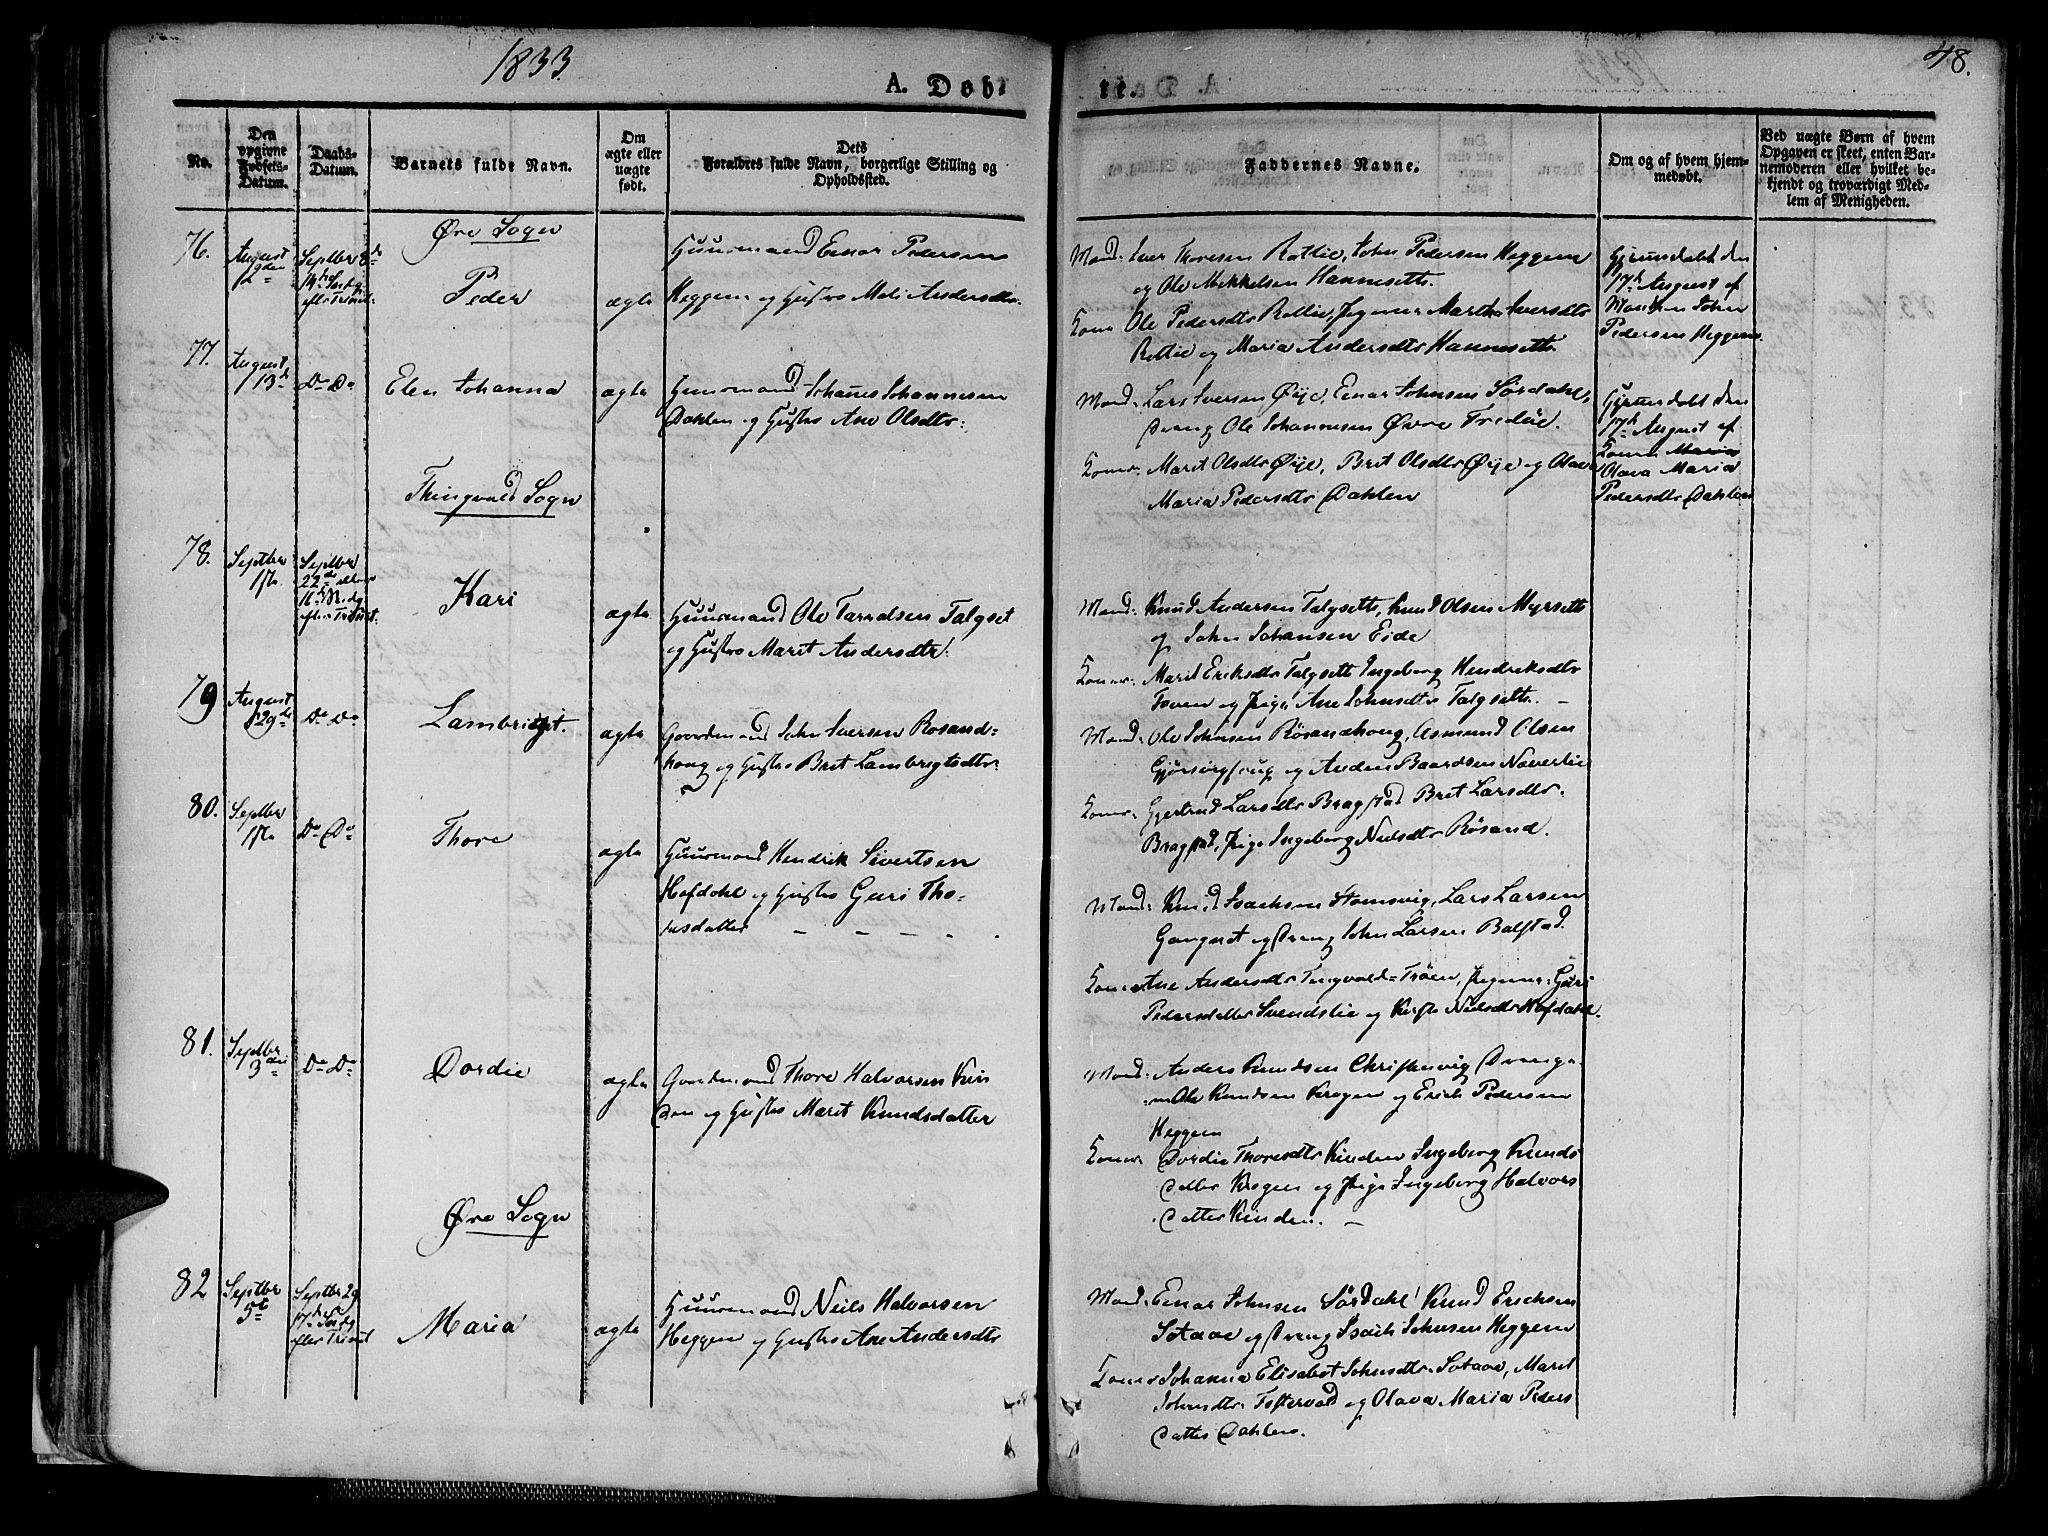 1833
48.
A. Døbte.
No.
Den opgivne Fødsels-Datum.
Daabs-Datum.
Barnets fulde Navn.
Om ægte eller uægte født.
Dets Forældres fulde Navn, borgerlige Stilling og Opholdssted.
Faddernes Navne.
Om og af hvem hjemmedøbt.
Ved uægte Børn af hvem Opgaven er skeet, enten Barnemoderen eller hvilket bekjendt og troværdigt Medlem af Menigheden.
Øre Sogn
76.
August
Septbr 8de
14de Sndg
efter Trinit:
Peder
ægte
Huusmand Einar Pedersen
Heggem og Hustro Mali Andersdtr.
Mænd: Iver Thoresen Rottie, John Pedersen Heggem
og Ole Mikkelsen Hannesett.
Pedersdtr Rottie, Marthe Iversdtr
Rottie og Maria Andersdtr Hannesett.
den
17de August af
John
Pedersen Heggem
77.
August
13de
Do Do
Elen Johanna
ægte
Huusmand Johannes Johannesen
Dahlen og Hustro Ane Olsdtr:
Mænd: Lars Iversen Øije, Einar Johnsen Sørdahl,
Dreng Ole Johannesen Øvre Fredlie.
Koner: Marit Olsdtr Øije, Brit Olsdtr Øije og Olava
Maria Pedersdtr Dahlen
den
17de August af
Olava Maria
Pedersdtr Dahlen
Thingvold Sogn
78.
Septbr
1ste
Septbr
22de
16de
efter Trinit.
Kari
ægte
Huusmand Ole Taraldsen Talgset
og Hustro Marit Andersdtr.
Mænd: Knud Andersen Talgsett, Knud Olsen Myrsett
og John Johansen Eide
Koner: Marit Eriksdtr Talgsett Ingeborg Hendriksdtr
og Pige Ane Johnsdtr Talgsett. –
79
August
29de
Do Do
Lambrigt.
ægte
Gaardmand John Iversen Rosand=
houg og Hustro Brit Lambrigtsdtr.
Mænd: Ole Johnsen Røsandhoug, Asmund Olsen
og Anders Baardsen Naverlie
Koner: Gjertrud Larsdtr Bragstad Brit Larsdtr.
Bragstad, Pige Ingeborg Nielsdtr Røsand.
80.
Septbr
1ste
Do Do
Thore
ægte
Huusmand Hendrik Sivertsen
Hofdahl og Hustro Guri Tho-
resdatter – – – – .
Mænd: Knud Isachsen Stomsvig, Lars Larsen
Gangset og Dreng John Larsen Balstad.
Koner Ane Andersdtr Tingvold=Trøen, Pigerne: Guri
Pedersdatter Svendslie og Nielsdtr Hofdahl.
81.
Septbr
3die
Do Do
Dordie
ægte
Gaardmand Thore Halvorsen Kin
den og Hustro Marit Knudsdatter
Mænd: Anders Knudsen Christenvig Drenge
ne Ole Knudsen Krogen og Erich Pedersen
Heggem
Koner Dordie Thoresdtr Kinden Ingeborg Knuds
datter Krogen og Pige Ingeborg Halvors
datter Kinden. –
Øre Sogn
82
Septbr
5te
Septbr 29
17de Sndg
efter Trinit
Maria
ægte
Huusmand Neils Halvorsen
Heggem og Hustro Ane Andersdtr
Mænd: Einar Johnsen Sørdahl Knud Erichsen
Sotaae og Dreng Isach Johnsen Heggem
Koner Johanna Elisabet Johnsdtr Sotaae, Marit
Johnsdtr Fostervold og Olava Maria Peders
datter Dahlen.